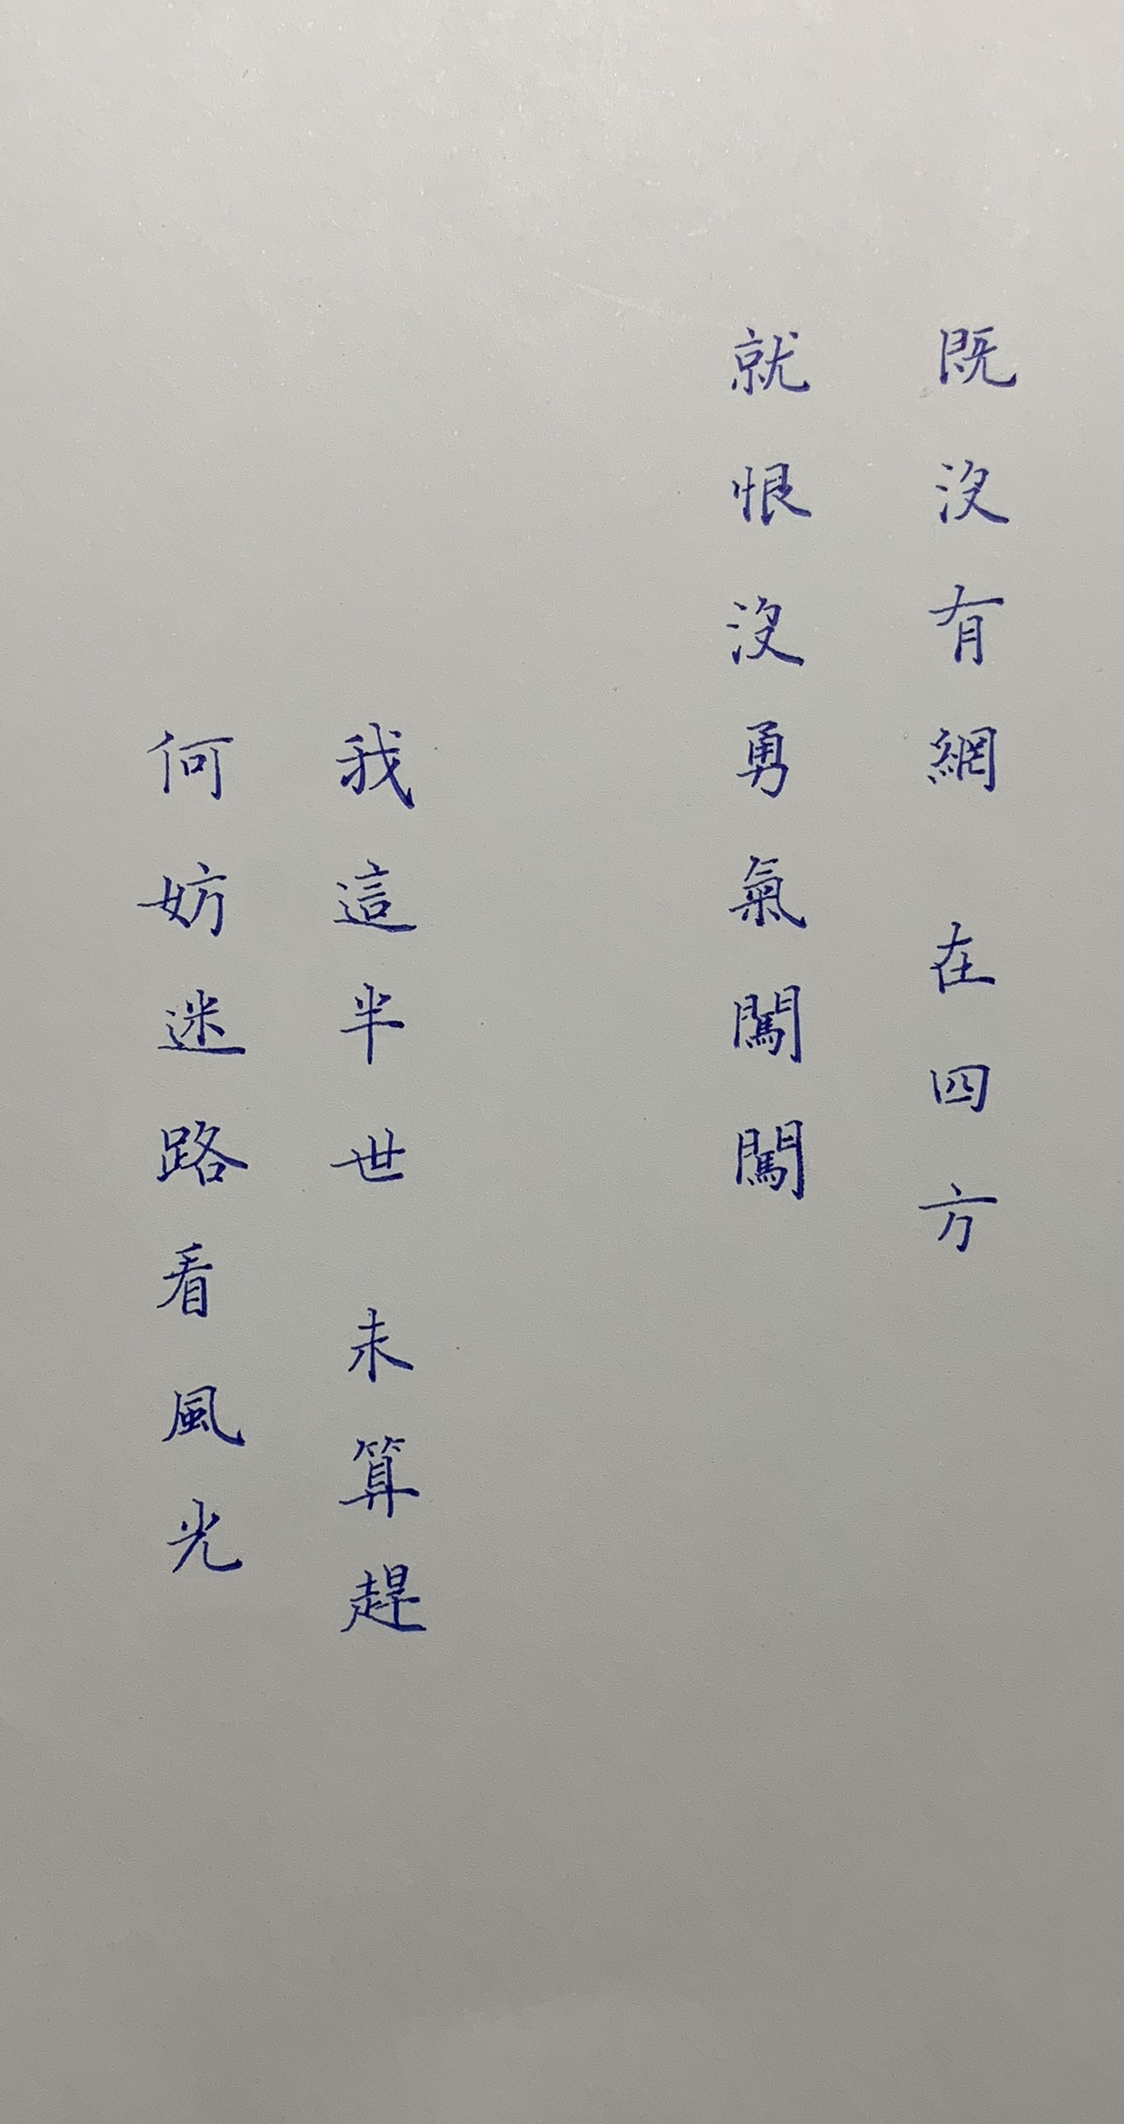 既沒有網 在四方
就恨沒勇氣闖闖
我這半世 未算趕
何妨迷路看風光